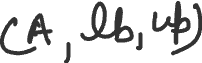 (A, lb, up)